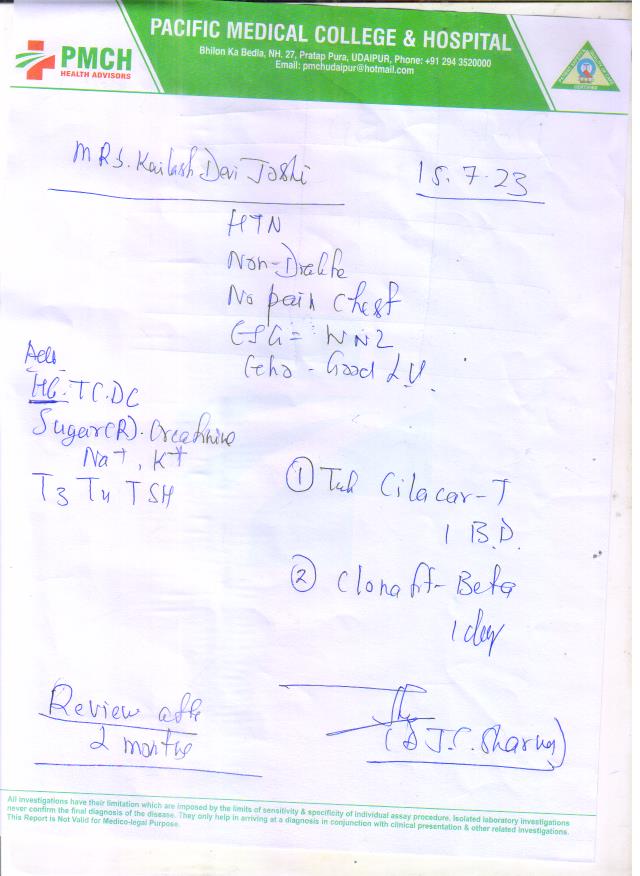 PMCH
HEALTH ADVISORS
PACIFIC MEDICAL COLLEGE & HOSPITAL
Bhilon Ka Bedla, NH. 27, Pratap Pura, UDAIPUR, Phone: +91 294 3520000
Email: pmchudaipur@hotmail.com
CERTIFIED
MRS. Kailash Devi Joshi
15.7.23
HTN
Non-Diabte
No pain chest
ECG = WNL
Echo - Good LV.
Adv
HB. TC. DC
Sugar(R). Creatinine
Na+, K+
T3 T4 TSH
① Tab Cilacar-T
1 B.D.
② Clonafit-Beta
1 day
Review after
2 months
(Dr J.C. Sharma)
All investigations have their limitation which are imposed by the limits of sensitivity & specificity of individual assay procedure. Isolated laboratory investigations
never confirm the final diagnosis of the disease. They only help in arriving at a diagnosis in conjunction with clinical presentation & other related investigations.
This Report is Not Valid for Medico-legal Purpose.